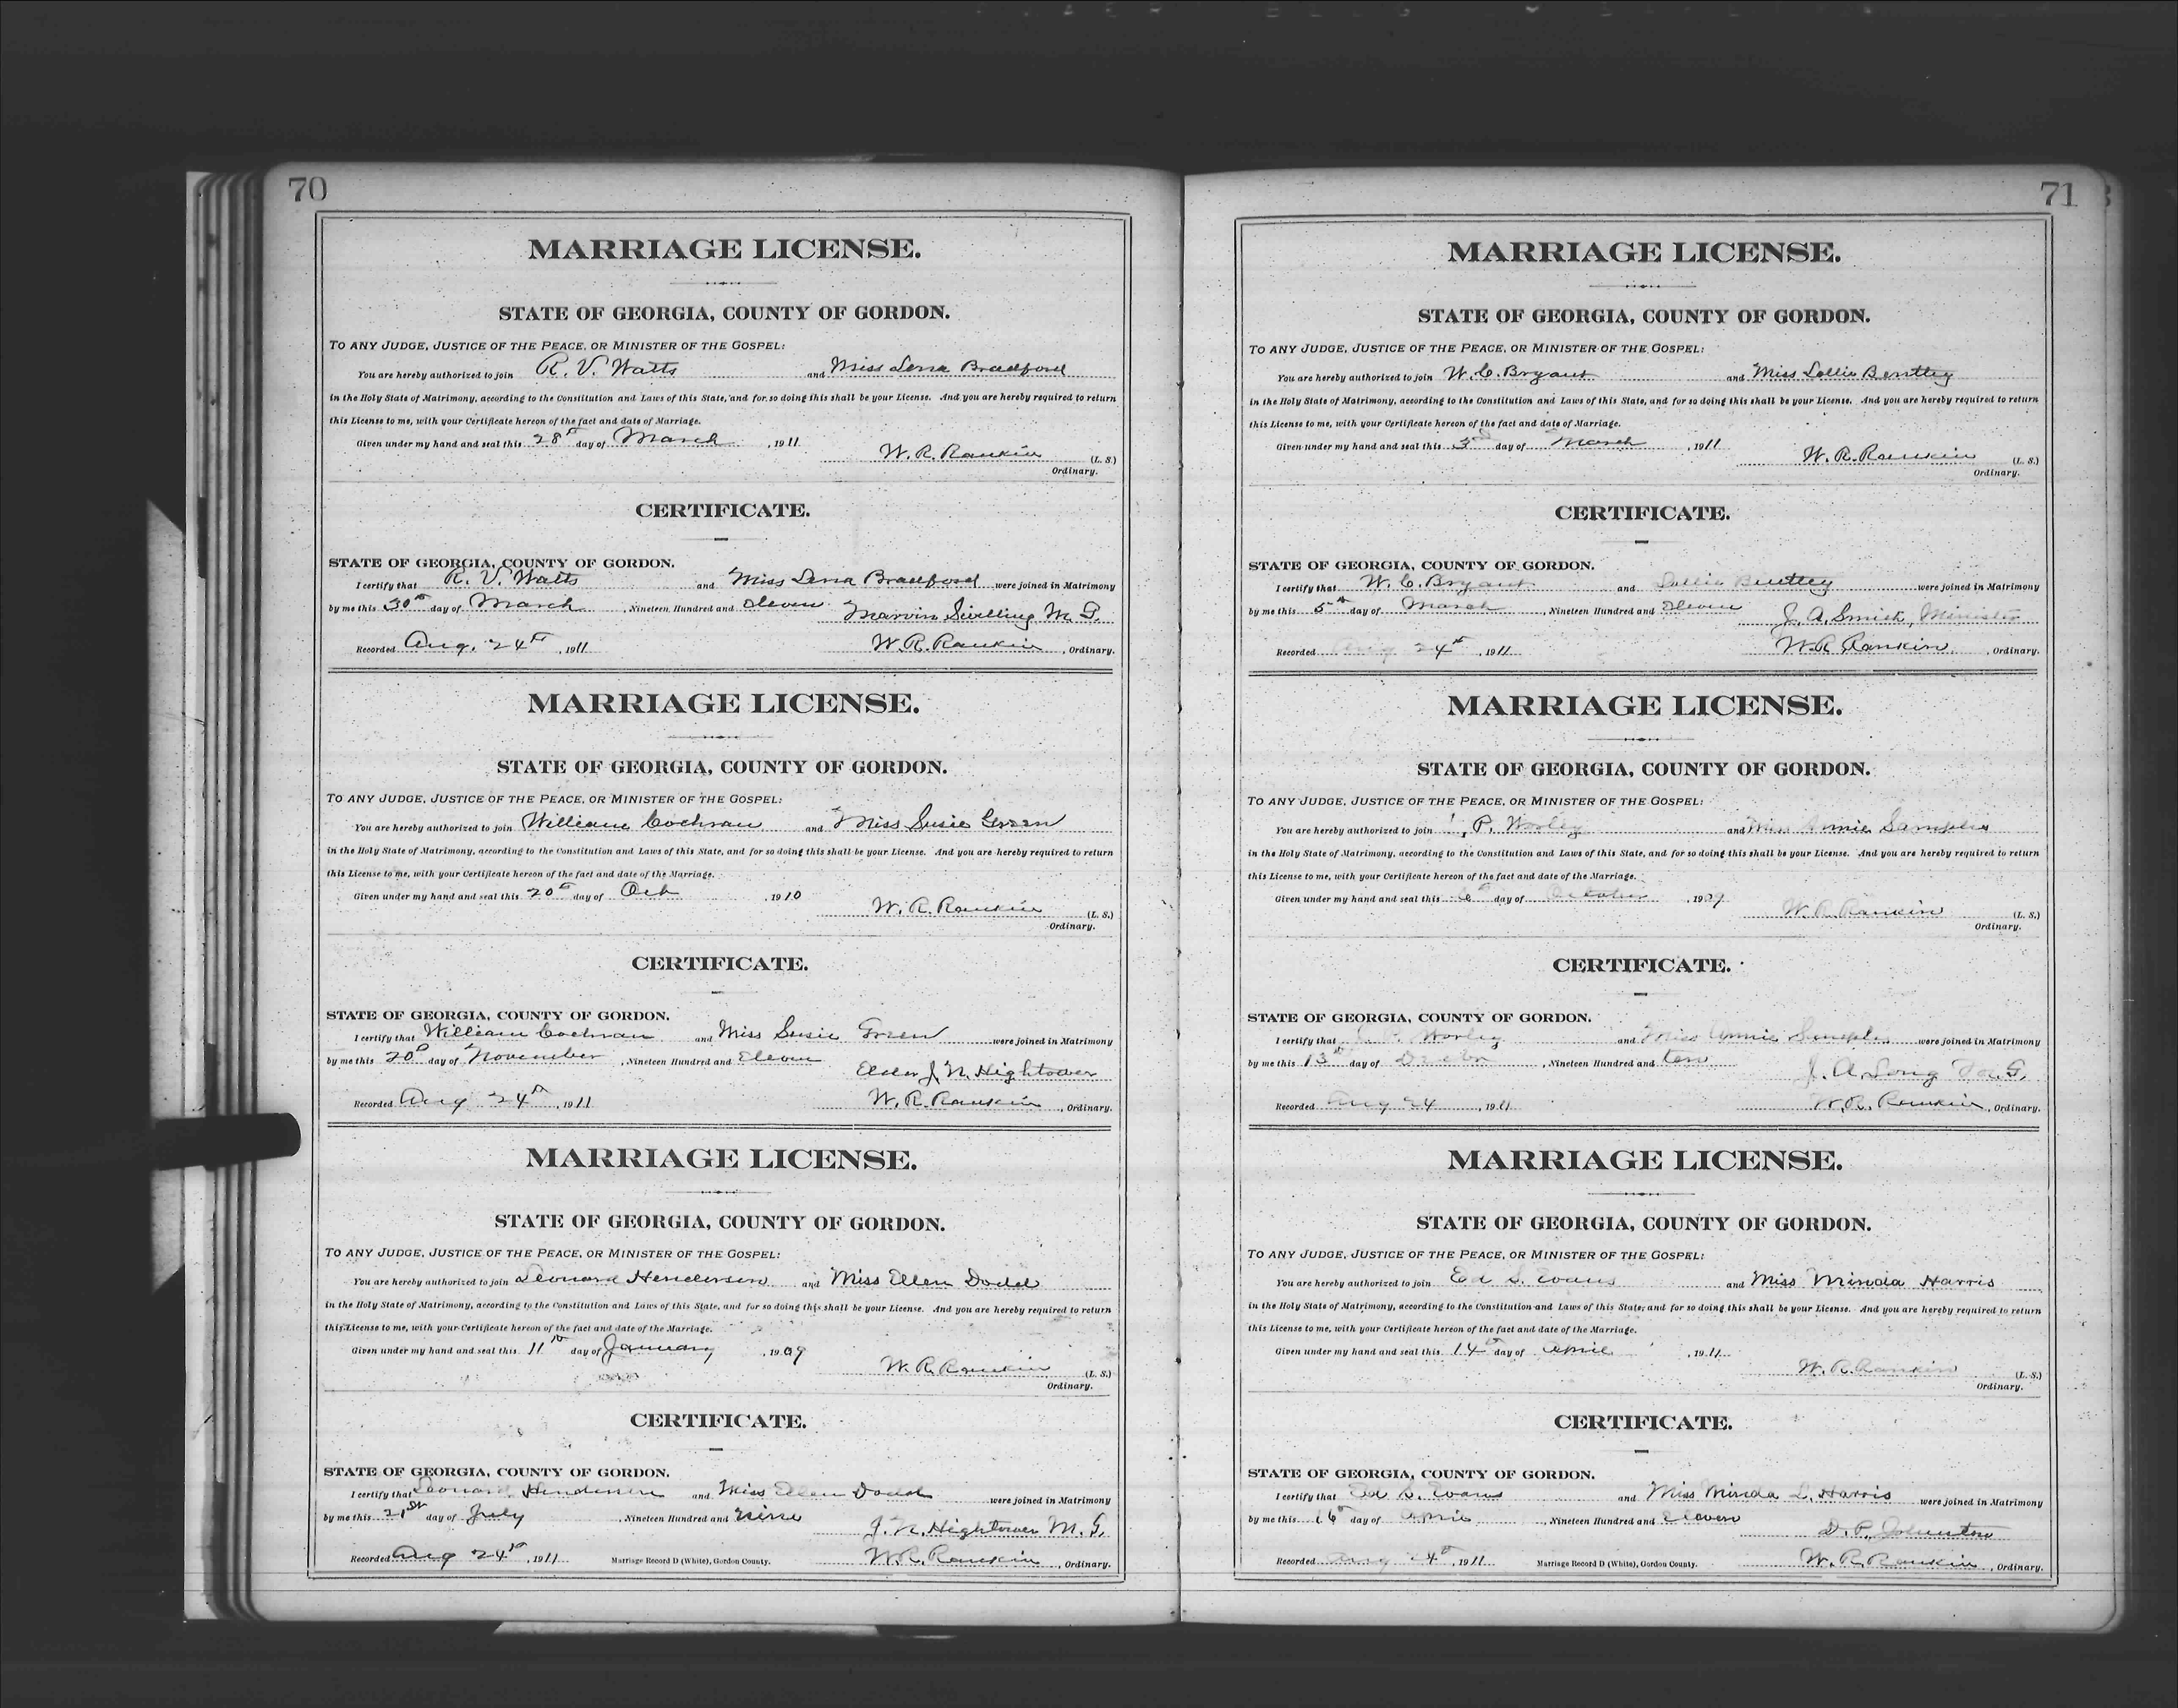 70
MARRIAGE LICENSE.
STATE OF GEORGIA, COUNTY OF GORDON.
TO ANY JUDGE, JUSTICE OF THE PEACE, OR MINISTER OF THE GOSPEL:
You are hereby authorized to join R. V. Watts and Miss Lena Bradford
in the Holy State of Matrimony, according to the Constitution and Laws of this State, and for so doing this shall be your License. And you are hereby required to return
this License to me, with your Certificate hereon of the fact and date of Marriage.
Given under my hand and seal this 28th day of March, 1911
W. R. Rankin (L. S.)
Ordinary.
CERTIFICATE.
STATE OF GEORGIA, COUNTY OF GORDON.
I certify that R. V. Watts and Miss Lena Bradford were joined in Matrimony
by me this 30th day of March, Nineteen Hundred and eleven Marvin Swilling M. G.
Recorded Aug. 24th, 1911 W. R. Rankin, Ordinary.
MARRIAGE LICENSE.
STATE OF GEORGIA, COUNTY OF GORDON.
TO ANY JUDGE, JUSTICE OF THE PEACE, OR MINISTER OF THE GOSPEL:
You are hereby authorized to join William Cochran and Miss Susie Green
in the Holy State of Matrimony, according to the Constitution and Laws of this State, and for so doing this shall be your License. And you are hereby required to return
this License to me, with your Certificate hereon of the fact and date of the Marriage.
Given under my hand and seal this 20th day of Oct, 1910
W. R. Rankin (L. S.)
Ordinary.
CERTIFICATE.
STATE OF GEORGIA, COUNTY OF GORDON.
I certify that William Cochran and Miss Susie Green were joined in Matrimony
by me this 20th day of November, Nineteen Hundred and Eleven
Elder J. N. Hightower
Recorded Aug 24th, 1911 W. R. Rankin, Ordinary.
MARRIAGE LICENSE.
STATE OF GEORGIA, COUNTY OF GORDON.
TO ANY JUDGE, JUSTICE OF THE PEACE, OR MINISTER OF THE GOSPEL:
You are hereby authorized to join Leonard Henderson and Miss Ellen Dodd
in the Holy State of Matrimony, according to the Constitution and Laws of this State, and for so doing this shall be your License. And you are hereby required to return
this License to me, with your Certificate hereon of the fact and date of the Marriage.
Given under my hand and seal this 11th day of January, 1909
W. R. Rankin (L. S.)
Ordinary.
CERTIFICATE.
STATE OF GEORGIA, COUNTY OF GORDON.
I certify that Leonard Henderson and Miss Ellen Dodd were joined in Matrimony
by me this 21st day of July, Nineteen Hundred and nine J. N. Hightower M. G.
Recorded Aug 24th, 1911 Marriage Record D (White), Gordon County. W. R. Rankin, Ordinary.
71
MARRIAGE LICENSE.
STATE OF GEORGIA, COUNTY OF GORDON.
TO ANY JUDGE, JUSTICE OF THE PEACE, OR MINISTER OF THE GOSPEL:
You are hereby authorized to join W. C. Bryant and Miss Lollie Bentley
in the Holy State of Matrimony, according to the Constitution and Laws of this State, and for so doing this shall be your License. And you are hereby required to return
this License to me, with your Certificate hereon of the fact and date of Marriage.
Given under my hand and seal this 3rd day of March, 1911
W. R. Rankin (L. S.)
Ordinary.
CERTIFICATE.
STATE OF GEORGIA, COUNTY OF GORDON.
I certify that W. C. Bryant and Lollie Bentley were joined in Matrimony
by me this 5th day of March, Nineteen Hundred and eleven J. A. Smith, Minister
Recorded Aug 24th, 1911 W. R. Rankin, Ordinary.
MARRIAGE LICENSE.
STATE OF GEORGIA, COUNTY OF GORDON.
TO ANY JUDGE, JUSTICE OF THE PEACE, OR MINISTER OF THE GOSPEL:
You are hereby authorized to join P. Worley and Miss Annie Samples
in the Holy State of Matrimony, according to the Constitution and Laws of this State, and for so doing this shall be your License. And you are hereby required to return
this License to me, with your Certificate hereon of the fact and date of the Marriage.
Given under my hand and seal this 6th day of October, 1909
W. R. Rankin (L. S.)
Ordinary.
CERTIFICATE.
STATE OF GEORGIA, COUNTY OF GORDON.
I certify that P. Worley and Miss Annie Samples were joined in Matrimony
by me this 13th day of, Nineteen Hundred and ten J. A. Long G.
Recorded Aug 24, 1911 W. R. Rankin, Ordinary.
MARRIAGE LICENSE.
STATE OF GEORGIA, COUNTY OF GORDON.
TO ANY JUDGE, JUSTICE OF THE PEACE, OR MINISTER OF THE GOSPEL:
You are hereby authorized to join Ed S. Evans and Miss Minda Harris
in the Holy State of Matrimony, according to the Constitution and Laws of this State, and for so doing this shall be your License. And you are hereby required to return
this License to me, with your Certificate hereon of the fact and date of the Marriage.
Given under my hand and seal this 14th day of April, 1911
W. R. Rankin (L. S.)
Ordinary.
CERTIFICATE.
STATE OF GEORGIA, COUNTY OF GORDON.
I certify that Ed S. Evans and Miss Minda L. Harris were joined in Matrimony
by me this 16th day of April, Nineteen Hundred and Eleven D. P. Johnston
Recorded Aug 24th, 1911 Marriage Record D (White), Gordon County. W. R. Rankin, Ordinary.